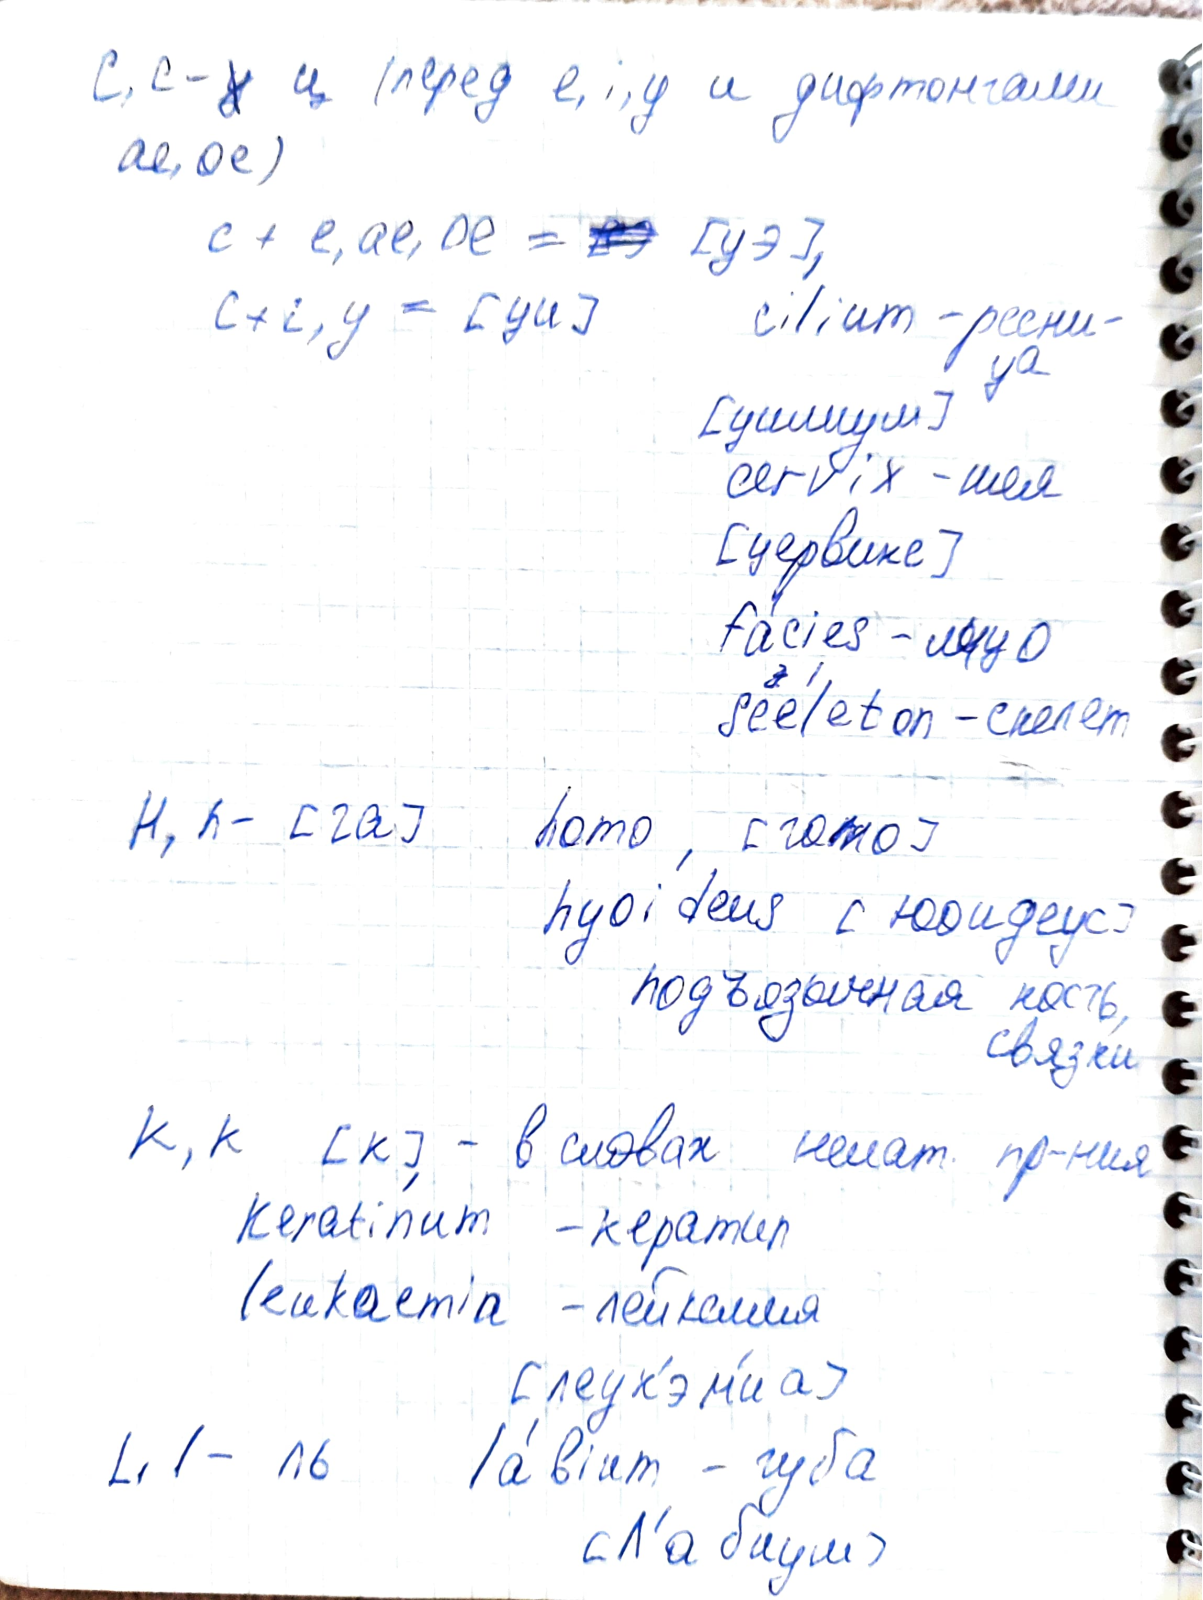 C, c - ц (перед e, i, y и дифтонгами
ae, oe)
c + e, ae, oe = [цэ],
c + i, y = [ци] cilium - ресни-
ца
[цилиум]
cervix - шея
[цервикс]
fácies - лицо
scéleton - скелет
H, h - [га] homo, [гомо]
hyoideus [гюоидеус]
подъязычная кость,
связки
K, k [к], - в словах нелат. пр-ния
Keratínum - кератин
leukaemia - лейкемия
[леук'эм'иа]
L, l - ль lábium - губа
[л'абиум]